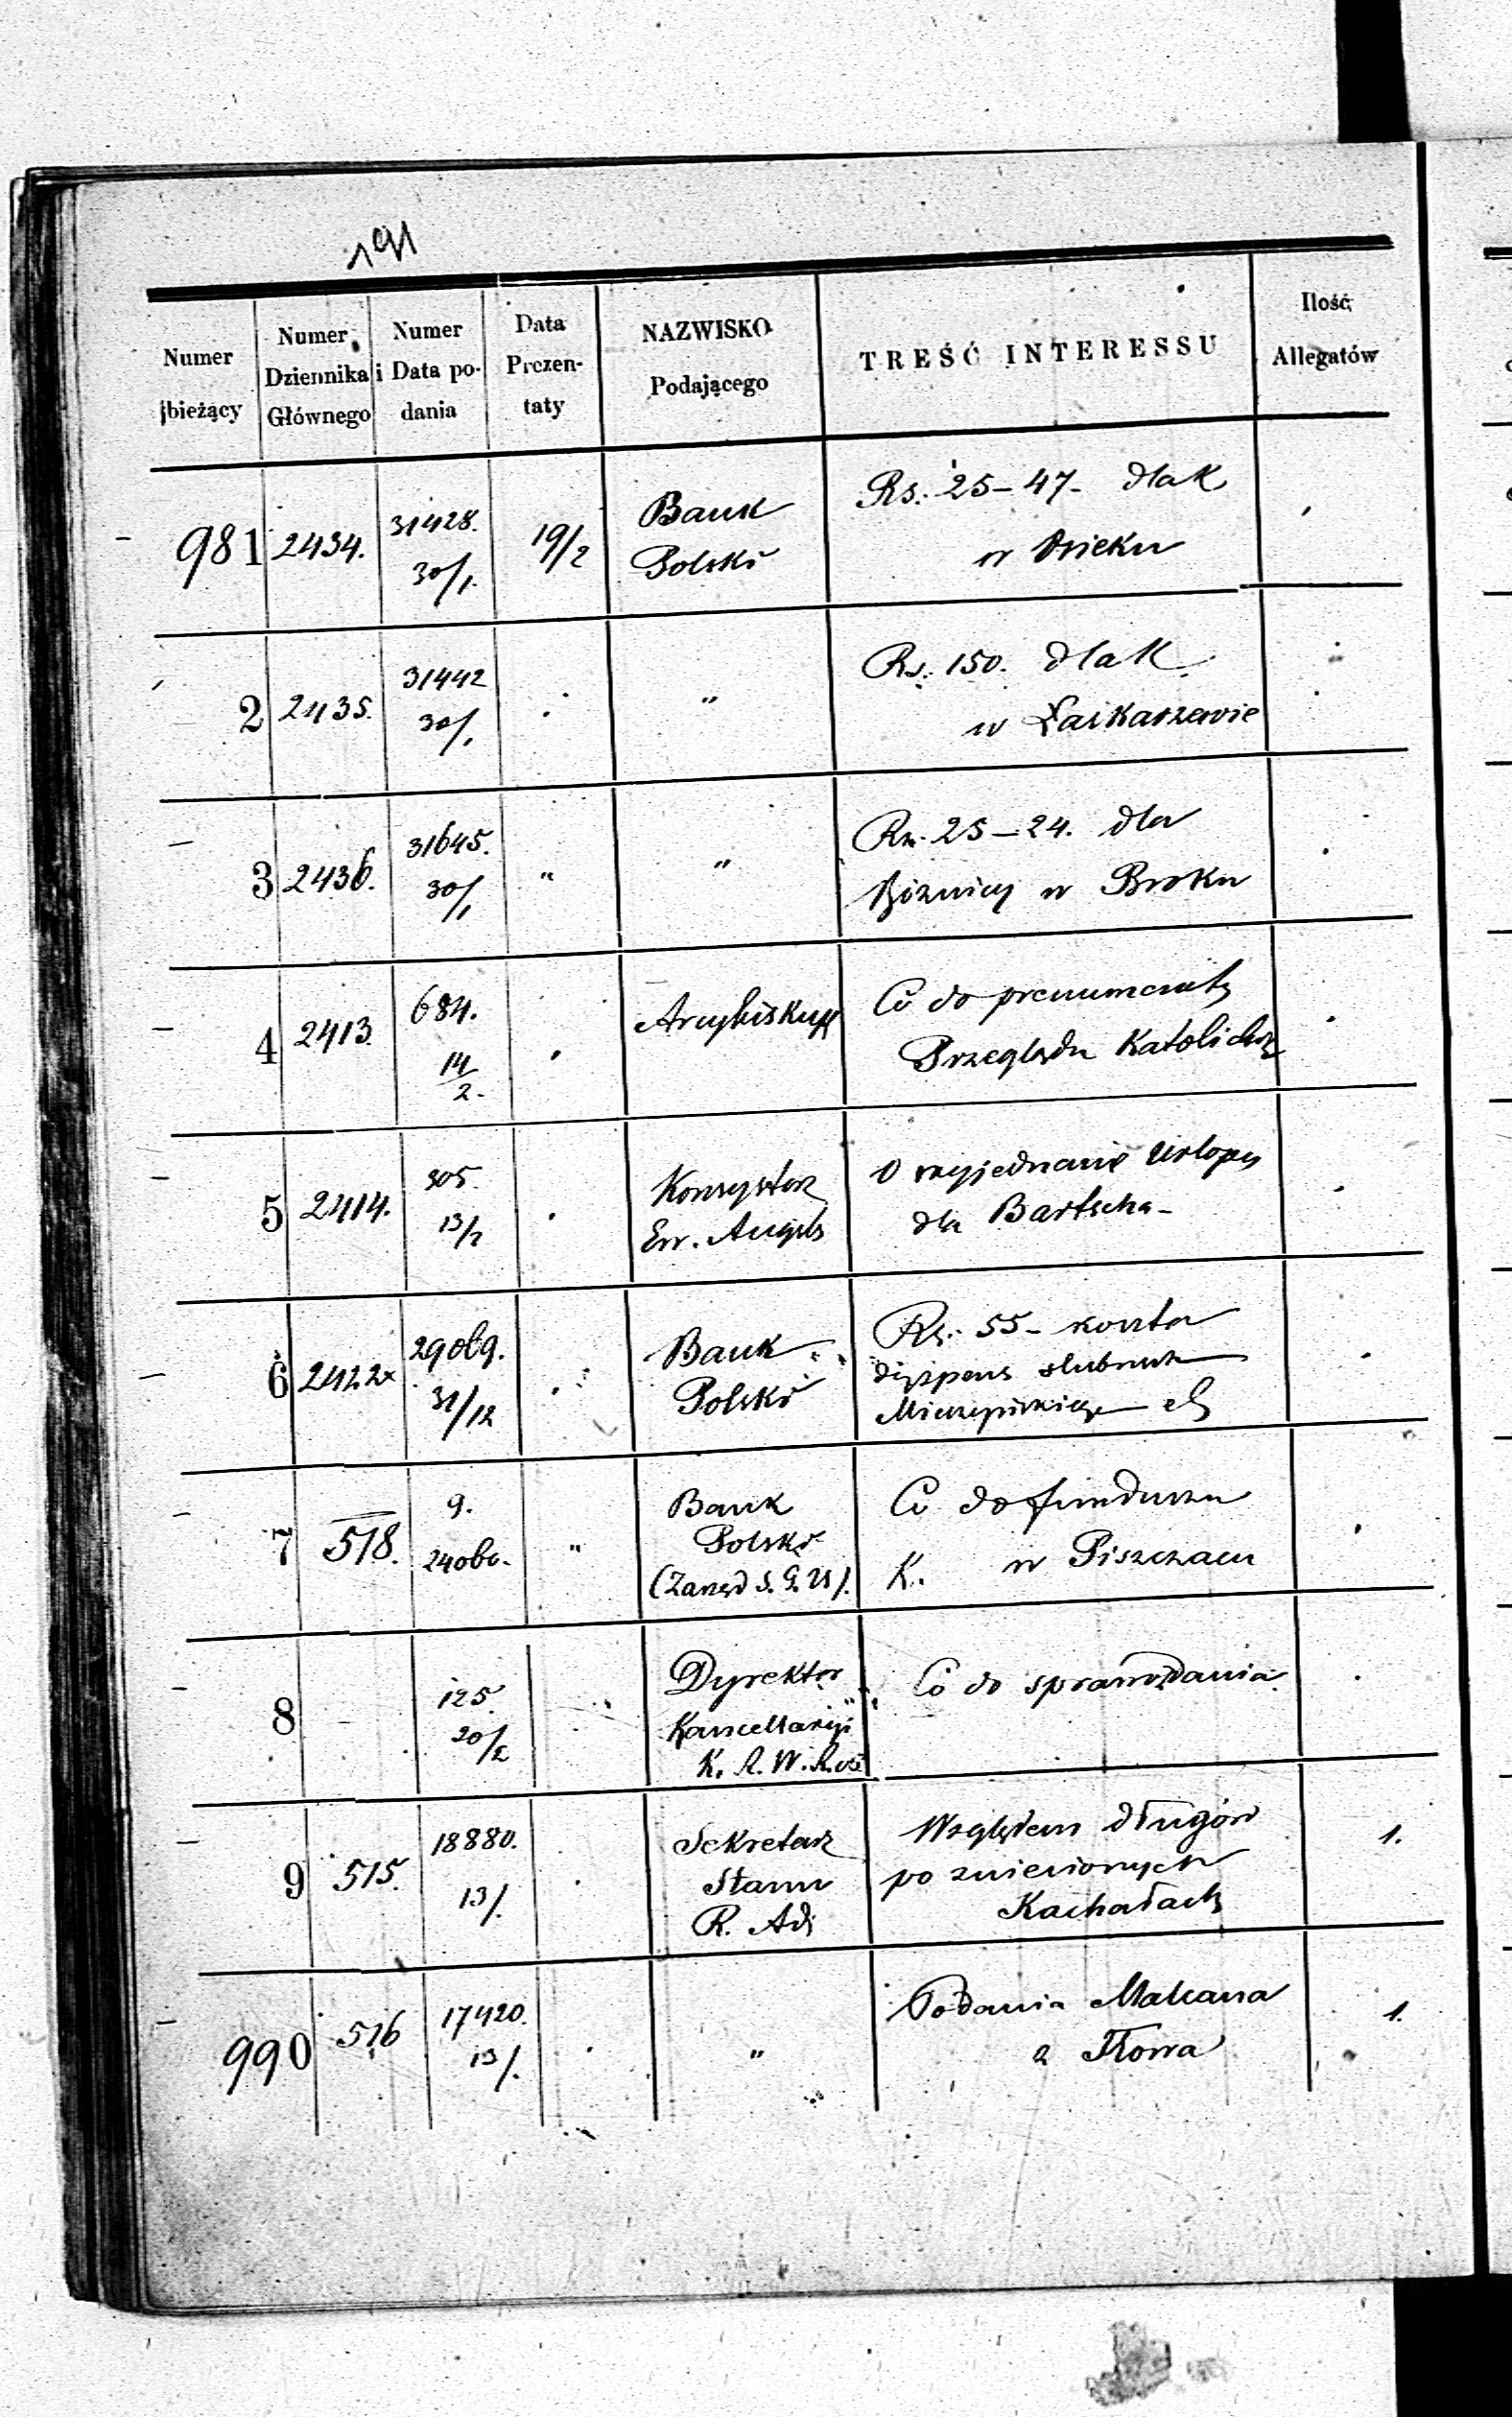 191
Numer bieżący
Numer Dziennika Głównego
Numer i Data podania
Data Prezentaty
NAZWISKO Podającego
TREŚĆ INTERESSU
Ilość Allegatów
981 2434. 31428. 30/1. 19/2 Bank Polski Rs. 25–47. dla K
w Osieku
2 2435. 31442 30/1 " Rs. 150. dla K
w Łaskarzewie
3 2436. 31645. 30/1 " " Rs. 25–24. dla
Bóżnicy w Broku
4 2413. 684. 14/2. Arcybiskup Co do prenumeraty
Przeglądu Katolick
5 2414. 305. 13/2 Konsystorz Ew. Augsb O wyjednanie Urlopu
dla Bartscha –
6 2422 29069. 31/12 Bank Polski Rs. 55 –
dyspens
7 518. 9. " Bank Polski (Zarząd S. G. U). Co do funduszu
K. w Piszczacu
8 125. 20/2 Dyrektor Kancellaryi K. R. W. Co do sprawozdania
9 515. 18880. 13/. Sekretarz Stanu R. Adj Względem długów
po zniesionych
Kachałach
990 516 17420. 13/. " Podania
z Iłowa
1.
1.